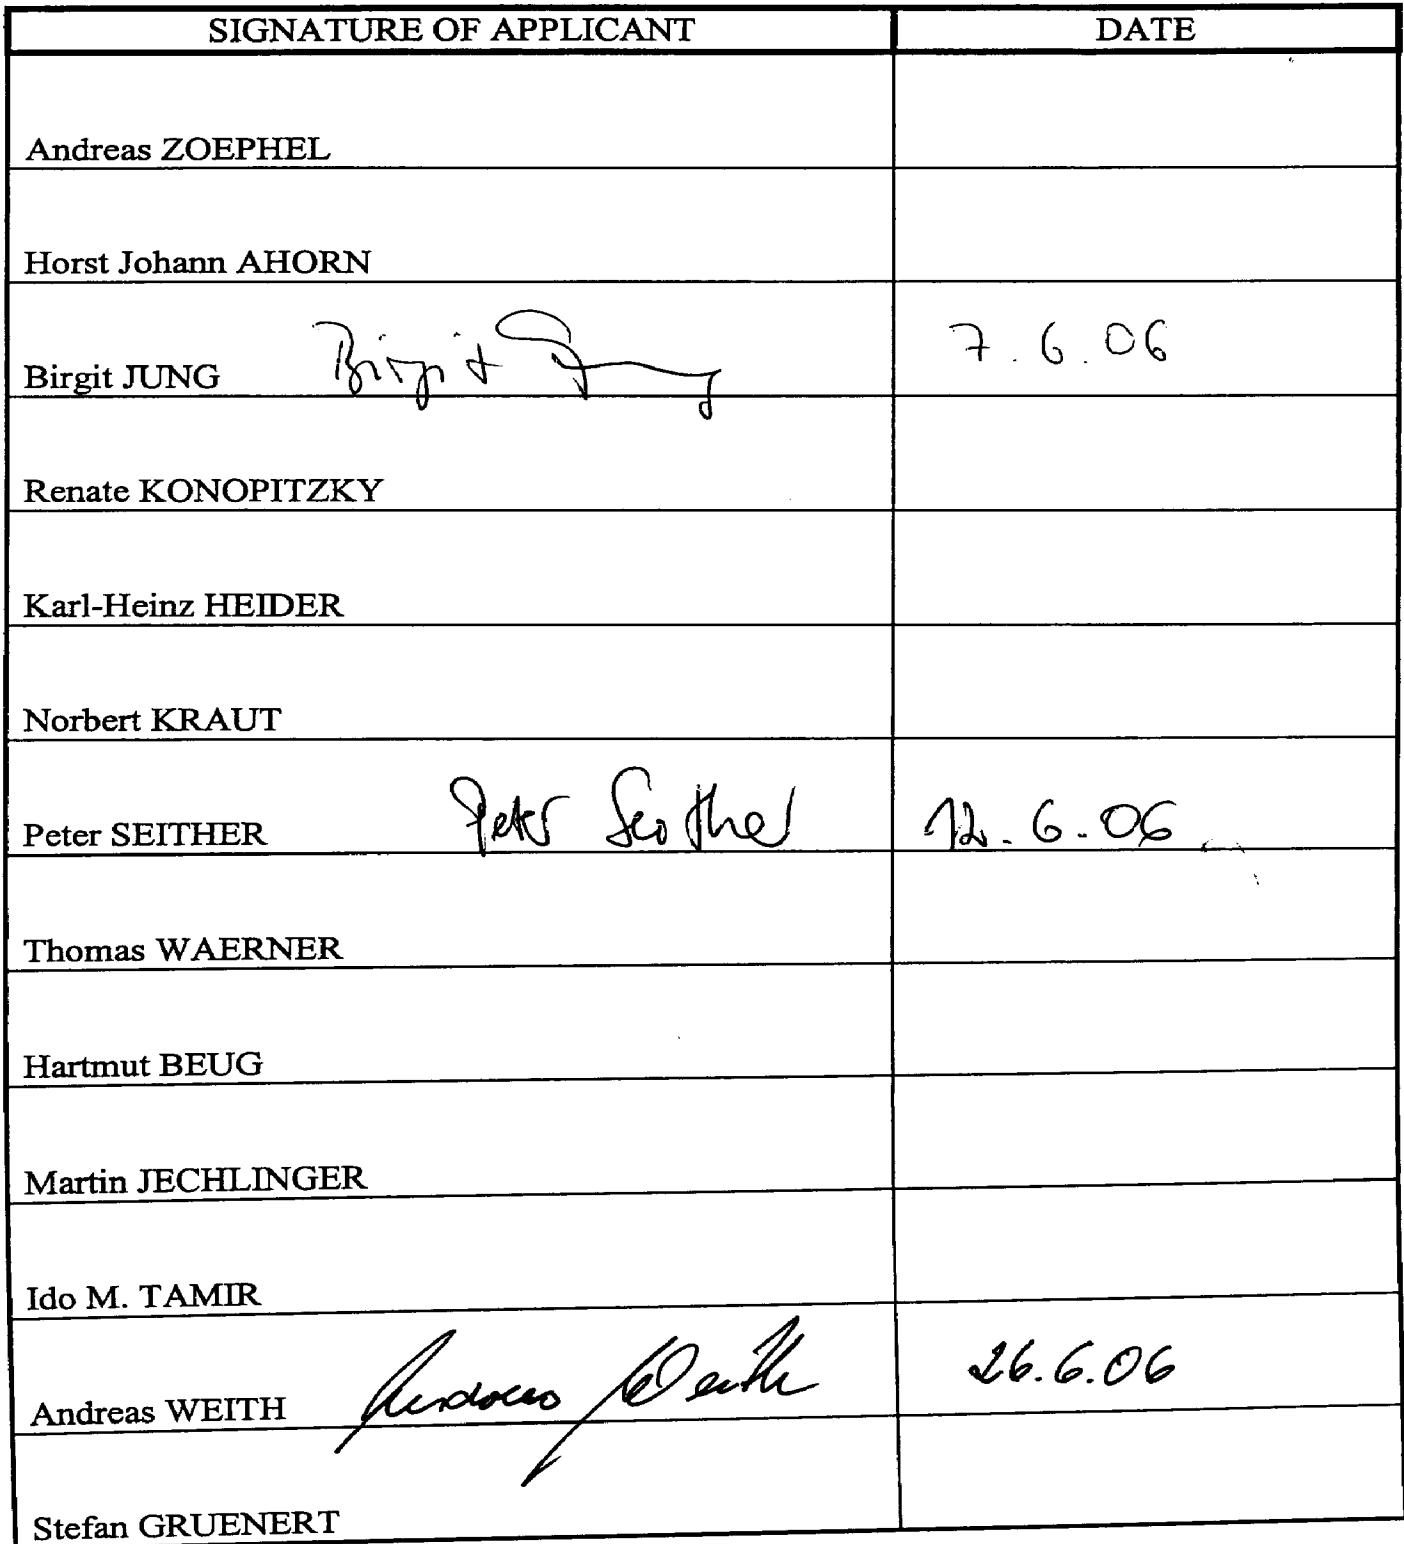 SIGNATURE OF APPLICANT DATE
Andreas ZOEPHEL
Horst Johann AHORN
Birgit JUNG Birgit Jung 7.6.06
Renate KONOPITZKY
Karl-Heinz HEIDER
Norbert KRAUT
Peter SEITHER Peter Seither 12.6.06
Thomas WAERNER
Hartmut BEUG
Martin JECHLINGER
Ido M. TAMIR
Andreas WEITH Andreas Weith 26.6.06
Stefan GRUENERT